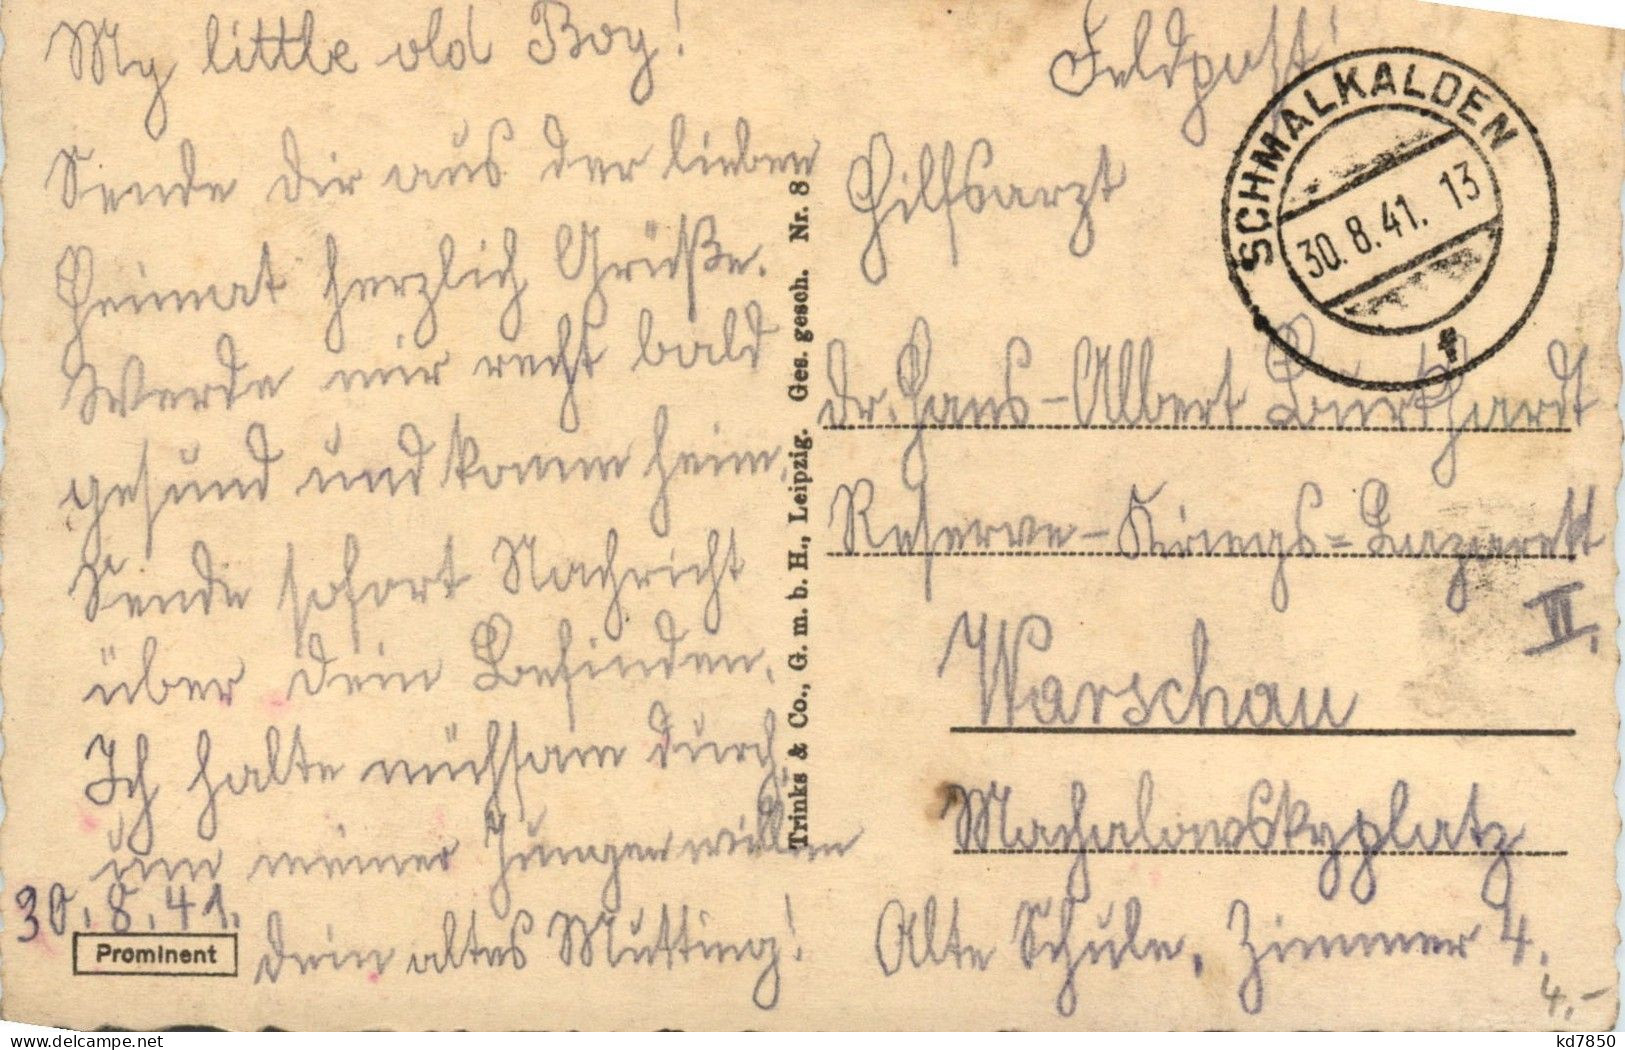 My little old Boy!
Sende dir aus der lieben
Heimat herzlich Grüße.
Werde mir recht bald
gesund und komm heim.
Sende sofort Nachricht
über dein Befinden.
Ich halte mühsam durch
um meiner Jungen willen
30.8.41.
dein altes Mutting!
Prominent
Trinks & Co., G. m. b. H., Leipzig. Ges. gesch. Nr. 8
Feldpost!
SCHMALKALDEN
30.8.41. 13
f
Hilfsarzt
dr. Hans-Albert Burkhardt
Reserve-Kriegs=Lazarett
II.
Warschau
Machalowskyplatz
Alte Schule, Zimmer 4.
4.-
kd7850